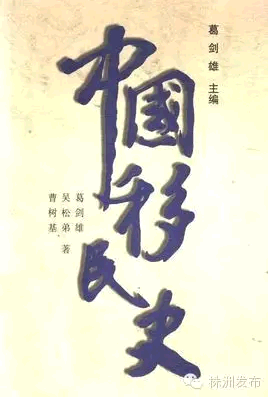 葛剑雄 主编
中國移民史
葛剑雄
吴松弟 著
曹树基
株洲发布